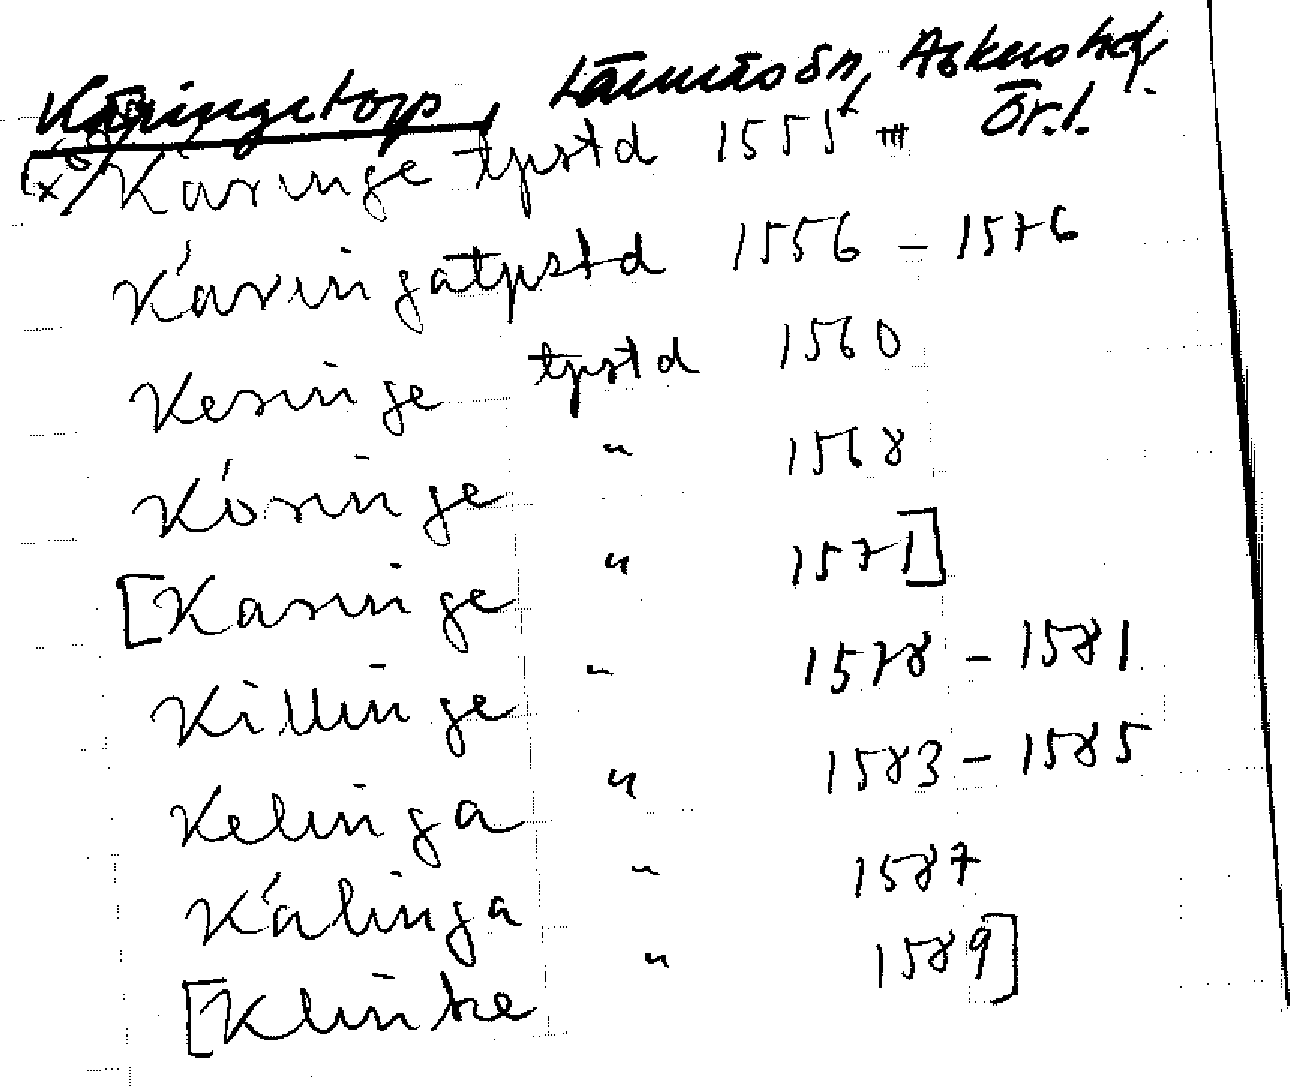 Käringetorp, Lännäs sn, Askers hd,
Ör.l.
[x/ Käringe tpstd 1555
Käringatpstd 1556 – 1576
Keringe tpstd 1560
Köringe " 1568
[Karinge " 1571]
Killinge " 1578 – 1581
Kelinga " 1583 – 1585
Kälinga " 1587
[Klinke " 1589]